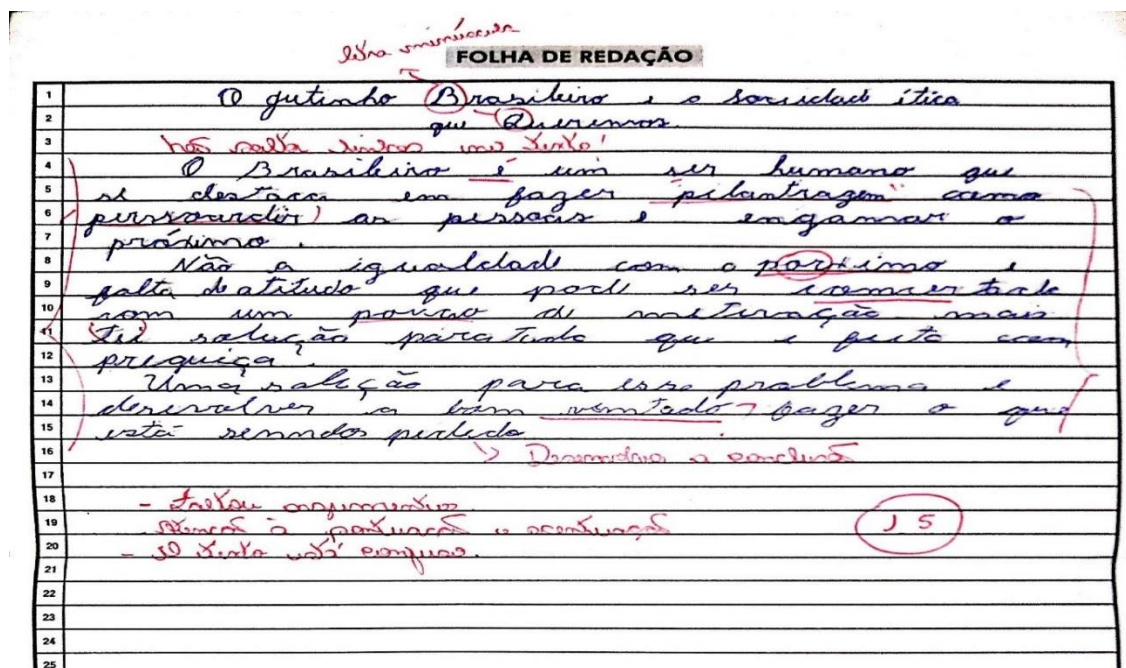 letra minúscula
FOLHA DE REDAÇÃO
1 O jeitinho Brasileiro e a sociedade ética
2 que Queremos.
3 não salta linhas no texto!
4 O Brasileiro é um ser humano que
5 se destaca em fazer "pilantragem" como
6 perssourdir as pessoas e enganar o
7 próximo.
8 Não a igualdade com o porximo e
9 falta de atitude que pode ser comcertado
10 com um pouco de metivação mais
11 tei solução para tudo que e feito com
12 preguiça.
13 Uma solição para esse problema e
14 desenvolver a bom vemtade, fazer o que
15 está senndos pedido
16 Desenvolva a conclusão
17
18 - Faltou argumentos
19 - Atenção à pontuação e acentuação
15
20 - O texto está confuso.
21
22
23
24
25